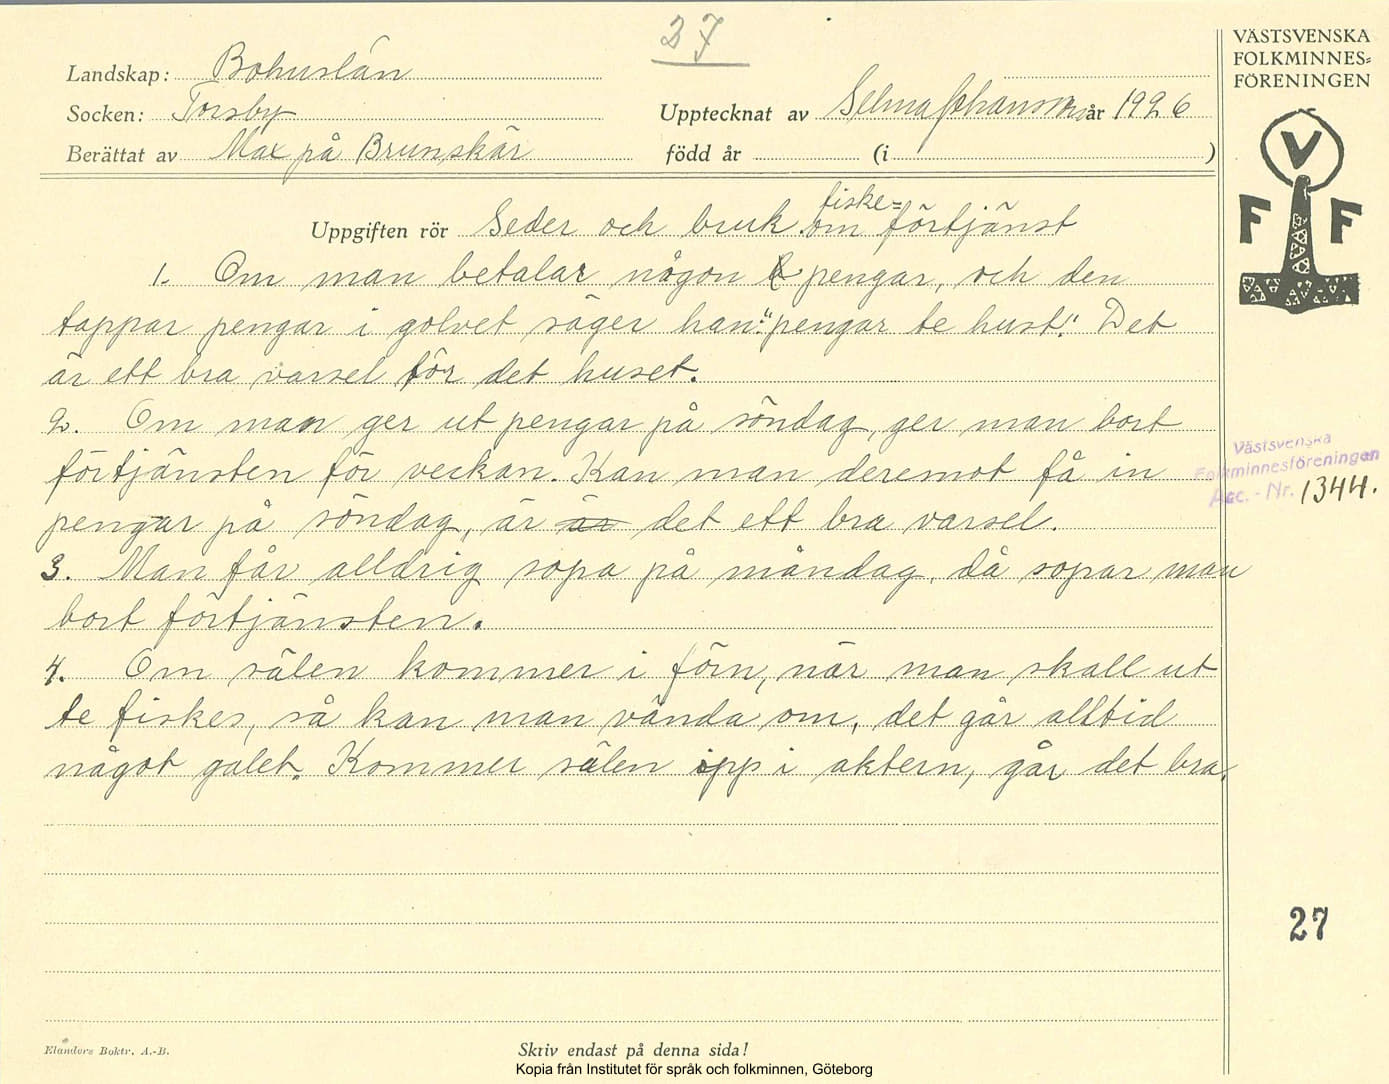 27
VÄSTSVENSKA
FOLKMINNES=
FÖRENINGEN
Landskap: Bohuslän
Socken: Torsby
Upptecknat av Selma Johansson år 1926
Berättat av Max på Brunskär
född år (i )
V
F F
fiske=
Uppgiften rör Seder och bruk om förtjänst
1. Om man betalar någon pengar, och den
tappar pengar i golvet säger han: "pengar te hust!" Det
är ett bra varsel för det huset.
2. Om man ger ut pengar på söndag, ger man bort
förtjänsten för veckan. Kan man deremot få in
pengar på söndag, är är det ett bra varsel.
3. Man får alldrig sopa på måndag, då sopar man
bort förtjänsten.
4. Om sälen kommer i förn, när man skall ut
te fiskes, så kan man vända om, det går alltid
något galet. Kommer sälen opp i aktern, går det bra.
Västsvenska
Folkminnesföreningen
Acc. - Nr. 1344.
27
Elanders Boktr. A.-B.
Skriv endast på denna sida!
Kopia från Institutet för språk och folkminnen, Göteborg